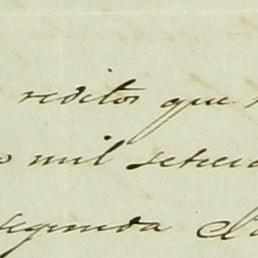 reditos que
mil setecie
segunda